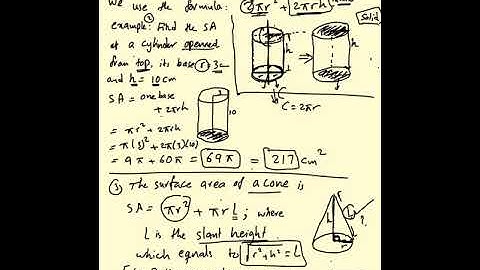 we use the formula: 2πr² + 2πrh
solid
example: Find the SA
of a cylinder opened
from top, its base r = 3c
and h = 10cm
h
h
SA = one base
+ 2πrh
10
C = 2πr
= πr² + 2πrh
= π(3)² + 2π(3)(10)
= 9π + 60π = 69π = 217 cm²
③ The surface area of a cone is
SA = πr² + πrL ; where
L is the slant height
which equals to √r²+h² = L
h
L
?
r